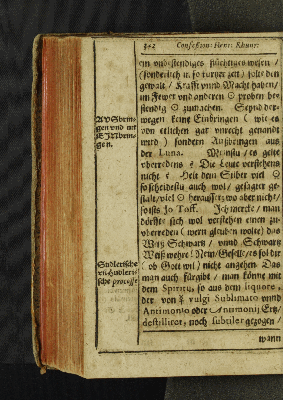 342 Confession: Henr: Khunr:
ein vnbestendiges flüchtiges wesen /
(sonderlich in so kurtzer zeit) solte den
gewalt / Krafft vnnd Macht haben /
im Fewer vnd anderen ☉ proben be-
stendig ☉ zumachen. Seynd der-
wegen keine Einbringen (wie es
von etlichen gar vnrecht genandt
wird) sondern Außbringen aus
der Luna. Meinstu / es gelte
vberredens? Die Leute verstehens
nicht? Helt dein Silber viel ☉
so scheidestu auch wol / gesagter ge-
stalt / viel ☉ heraus: wo aber nicht /
so ists Jo Taff. Ich mercke / man
dörffte sich wol verstehen einen zu-
vberreden (wern glauben wolte) das
Weiß Schwartz / vnnd Schwartz
Weiß wehre! Nein / Geselle / es sol dir
(ob Gott wil) nicht angehen. Das
man auch fürgibt / man könne mit
dem Spiritu, so aus dem liquore,
der von ☿ vulgi Sublimato vnnd
Antimonio oder Antimonij Ertz /
destilliret, noch subtiler gezogen /
wann
AVSbrin-
gen vnd nit
EJNbrin-
gen.
Sudlerische
vñ hudleri-
sche processe